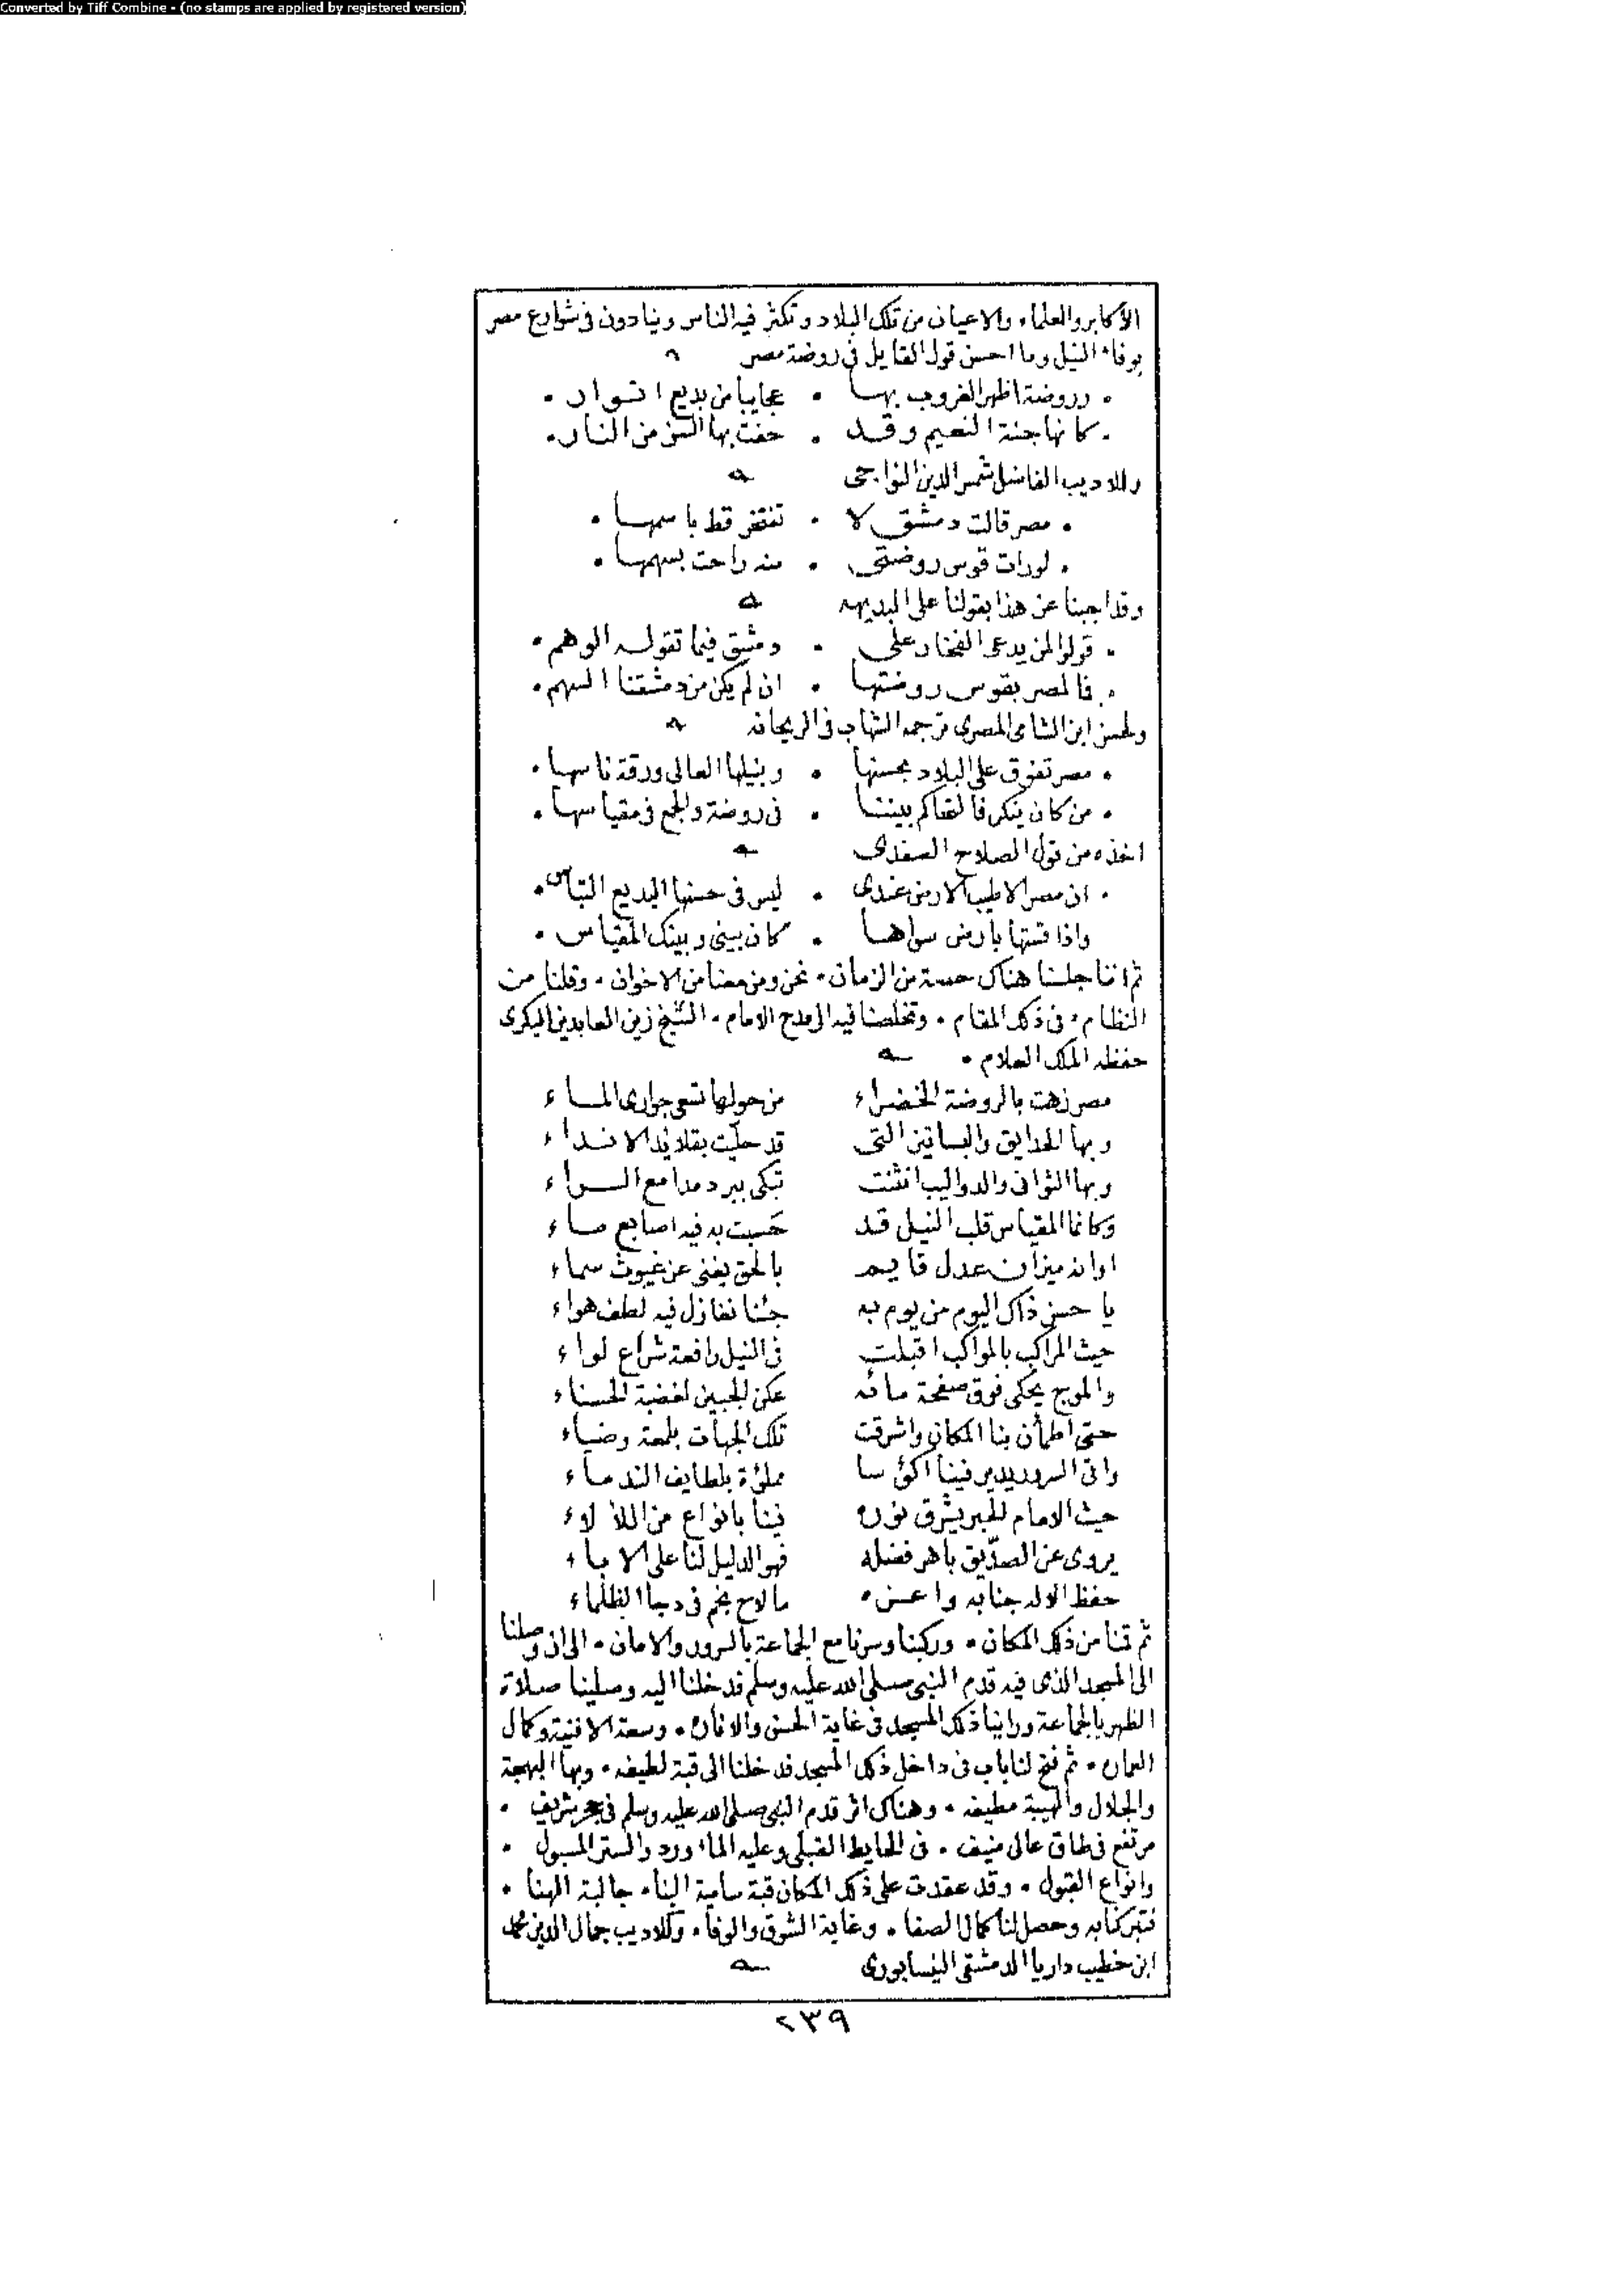 Converted by Tiff Combine - (no stamps are applied by registered version)
الأكابر والعلماء والاعيان من تلك البلاد وتكثر فيه الناس وينادون في شوارع مصر
بوفاء النيل وما احسن قول القايل في روضة مصر
وروضة اظهر الغروب بها • عجايبا من بديع انوار •
كانها جنة النعيم وقد • حفت بها السن من النار •
وللاديب الفاضل شمس الدين النواجي
• مصر قالت دمشق لا • تفتخر قط باسمها •
• لو رات قوس روضتي • منه راحت بسهمها •
وقد اجبنا عن هذا بقولنا على البديهه
• قولوا لمن يدعي الفخار على • دمشق فيما تقوله الوهم •
• فالمصر بقوس روضتها • ان لم يكن من دمشقنا السهم •
ولحسن ابن الشامي المصري ترجمه الشهاب في الريحانه
• مصر تفوق على البلاد بحسنها • وبنيلها العالي ورقة ناسها •
• من كان ينكر فالتحاكم بيننا • في روضة والجمع في مقياسها •
اخذه من قول الصلاح الصفدي
• ان مصر الاطيب الارض عندي • ليس في حسنها البديع التباس •
واذا قستها بارض سواها • كان بيني وبينك المقياس •
ثم اننا جلسنا هناك حصة من الزمان • نحن ومن معنا من الاخوان • وقلنا من
النظام • في ذلك المقام • وتخلصنا فيه الى مدح الامام • الشيخ زين العابدين البكري
حفظه الملك العلام •
مصر زهت بالروضة الخضراء من حولها تسعى جواري الماء
وبها الحدايق والبساتين التي قد حليت بقلائد الانداء
وبها السواقي والدواليب انثنت تبكي ببرد مدامع السراء
وكانما المقياس قلب النيل قد حسبت به فيه اصابع ماء
او انه ميزان عدل قايم بالحق يغني عن غيوث سماء
يا حسن ذاك اليوم من يوم به جئنا نغازل فيه لطف هواء
حيث المراكب بالمواكب اقبلت في النيل رافعة شراع لواء
والموج يحكي فوق صفحة مائه عكن الجبين لغضبة الحسناء
حتى اطمأن بنا المكان واشرقت تلك الجهات بلمعة وضياء
واتى السرور يدير فينا اكؤسا مملؤة بلطايف الندماء
حيث الامام الحبر يشرق نوره فينا بانواع من اللألاء
يروي عن الصديق باهر فضله فهو الدليل لنا على الاباء
حفظ الاله جنابه واعزه ما لاح نجم في دجا الظلماء
ثم قمنا من ذلك المكان • وركبنا وسرنا مع الجماعة بالسرور والامان • الى ان وصلنا
الى المسجد الذي فيه قدم النبي صلى الله عليه وسلم فدخلنا اليه وصلينا صلاة
الظهر بالجماعة وراينا ذلك المسجد في غاية الحسن والاتقان • وسعة الافنية وكمال
العمران • ثم فتح لنا باب في داخل ذلك المسجد فدخلنا الى قبة لطيفه • وبها البهجة
والجلال والهيبة مطيفه • وهناك اثر قدم النبي صلى الله عليه وسلم في حجر شريف •
مرتفع في طاق عالي منيف • في الحايط القبلي وعليه الماء ورد والستر المسبول •
وانواع القبول • وقد عقدت على ذلك المكان قبة سامية البناء جالبة الهنا •
فتبركنا به وحصل لنا كمال الصفا • وغاية الشوق والوفا • وللاديب جمال الدين محمد
ابن خطيب داريا الدمشقي النيسابوري
٢٣٩